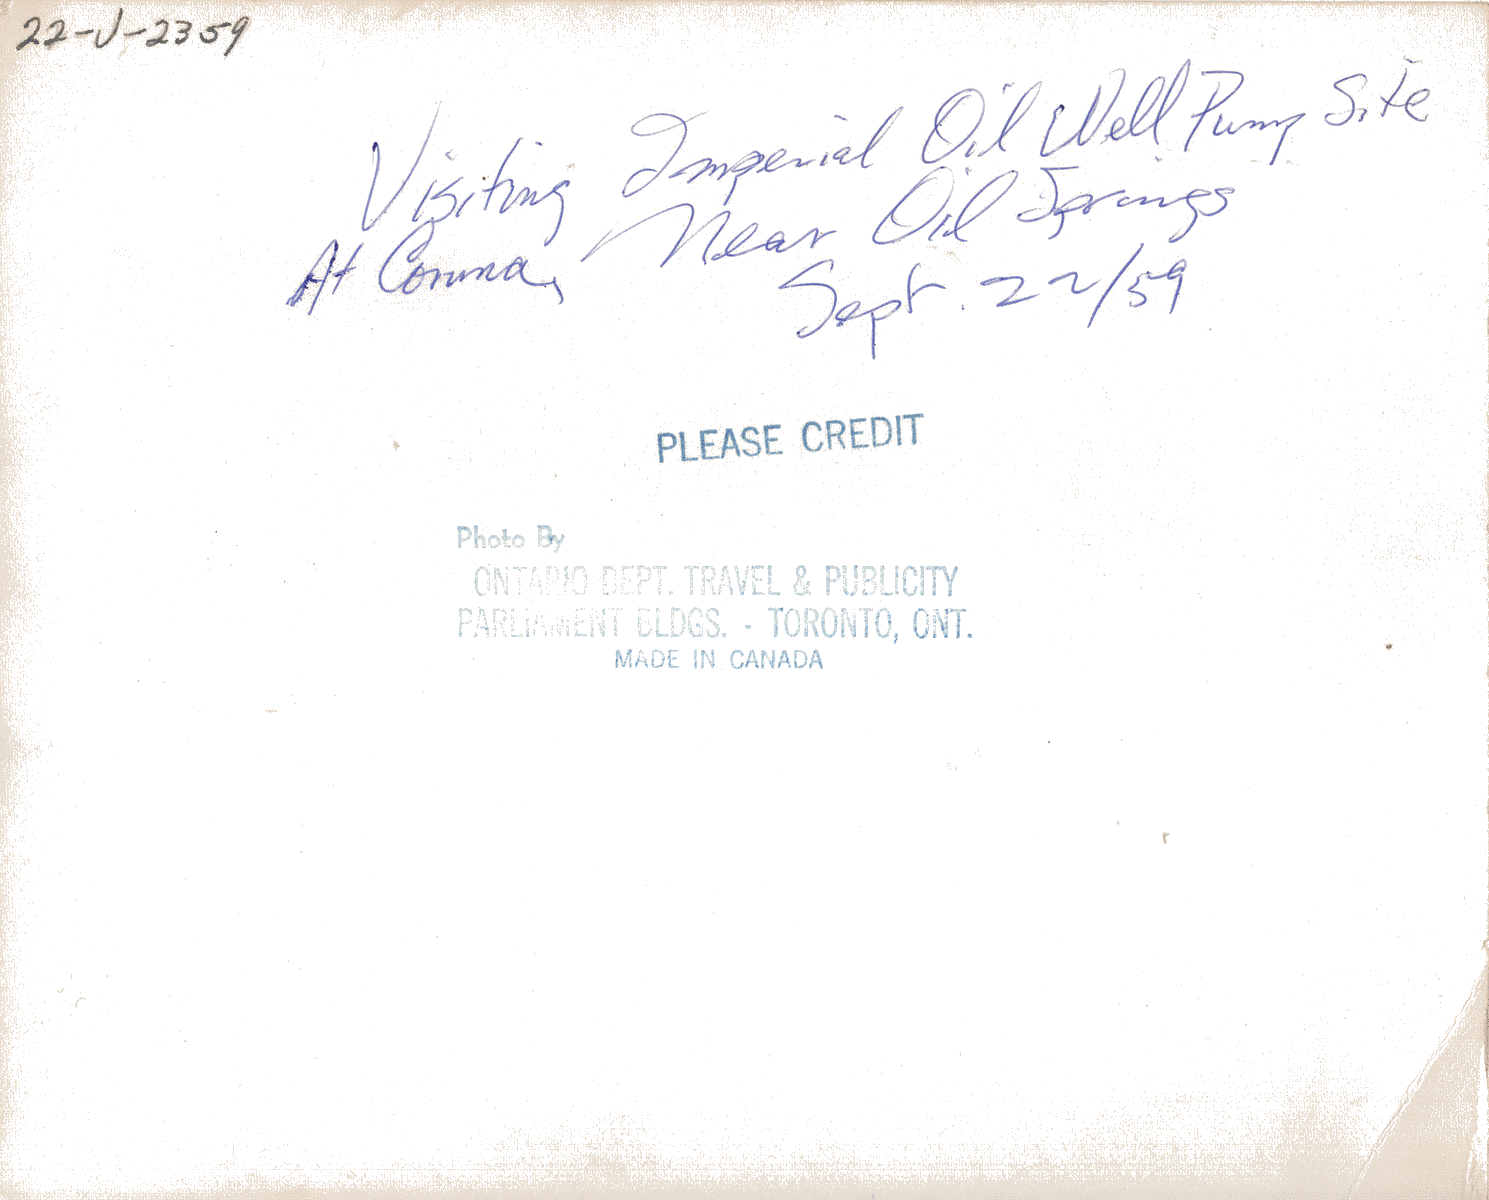 22-J-2359
Visiting Imperial Oil Well Pump Site
At Corunna, Near Oil Springs
Sept. 22/59
PLEASE CREDIT
Photo By
ONTARIO DEPT. TRAVEL & PUBLICITY
PARLIAMENT BLDGS. - TORONTO, ONT.
MADE IN CANADA